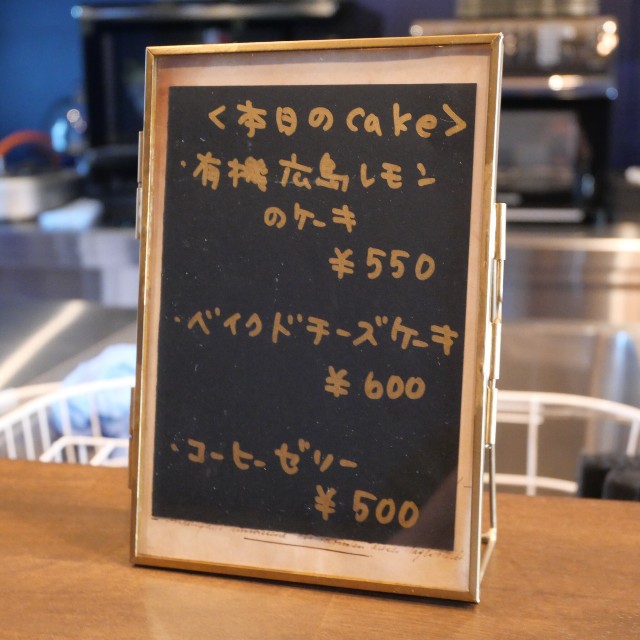 <本日のcake>
・有機広島レモン
のケーキ
¥550
・ベイクドチーズケーキ
¥600
・コーヒーゼリー
¥500